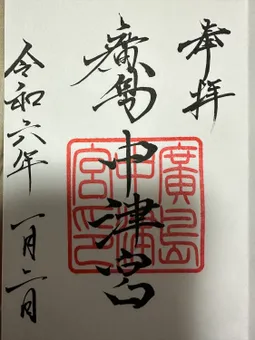 奉拝
廣島中津宮
廣島中津宮印
令和六年 一月二日